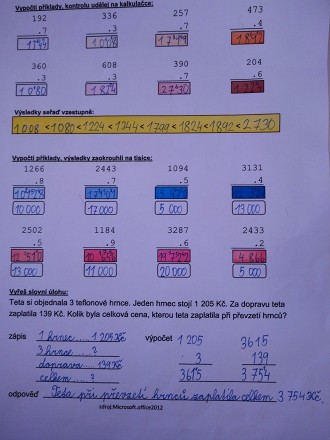 Vypočti příklady, kontrolu udělej na kalkulačce:
192 336 257 473
.7 .3 .7 .4
1344 1008 1799 1892
360 608 390 204
.3 .3 .7 .6
1080 1824 2730
Výsledky seřaď vzestupně:
1008 < 1080 < 1224 < 1344 < 1799 < 1824 < 1892 < 2730
Vypočti příklady, výsledky zaokrouhli na tisíce:
1266 2443 1094 3131
.8 .7 .5 .4
10 000 17 000 5 000 13 000
2502 1184 3287 2433
.5 .9 .6 .2
12 510 19 722 4 866
13 000 11 000 20 000 5 000
Vyřeš slovní úlohu:
Teta si objednala 3 teflonové hrnce. Jeden hrnec stojí 1 205 Kč. Za dopravu teta
zaplatila 139 Kč. Kolik byla celková cena, kterou teta zaplatila při převzetí hrnců?
zápis 1 hrnec .... 1 205 Kč výpočet 1 205 3615
3 hrnce .... ? . 3 139
doprava ..... 139 Kč 3615 3 754
celkem ..... ?
odpověď Teta při převzetí hrnců zaplatila celkem 3 754 Kč.
zdroj:Microsoft.office2012